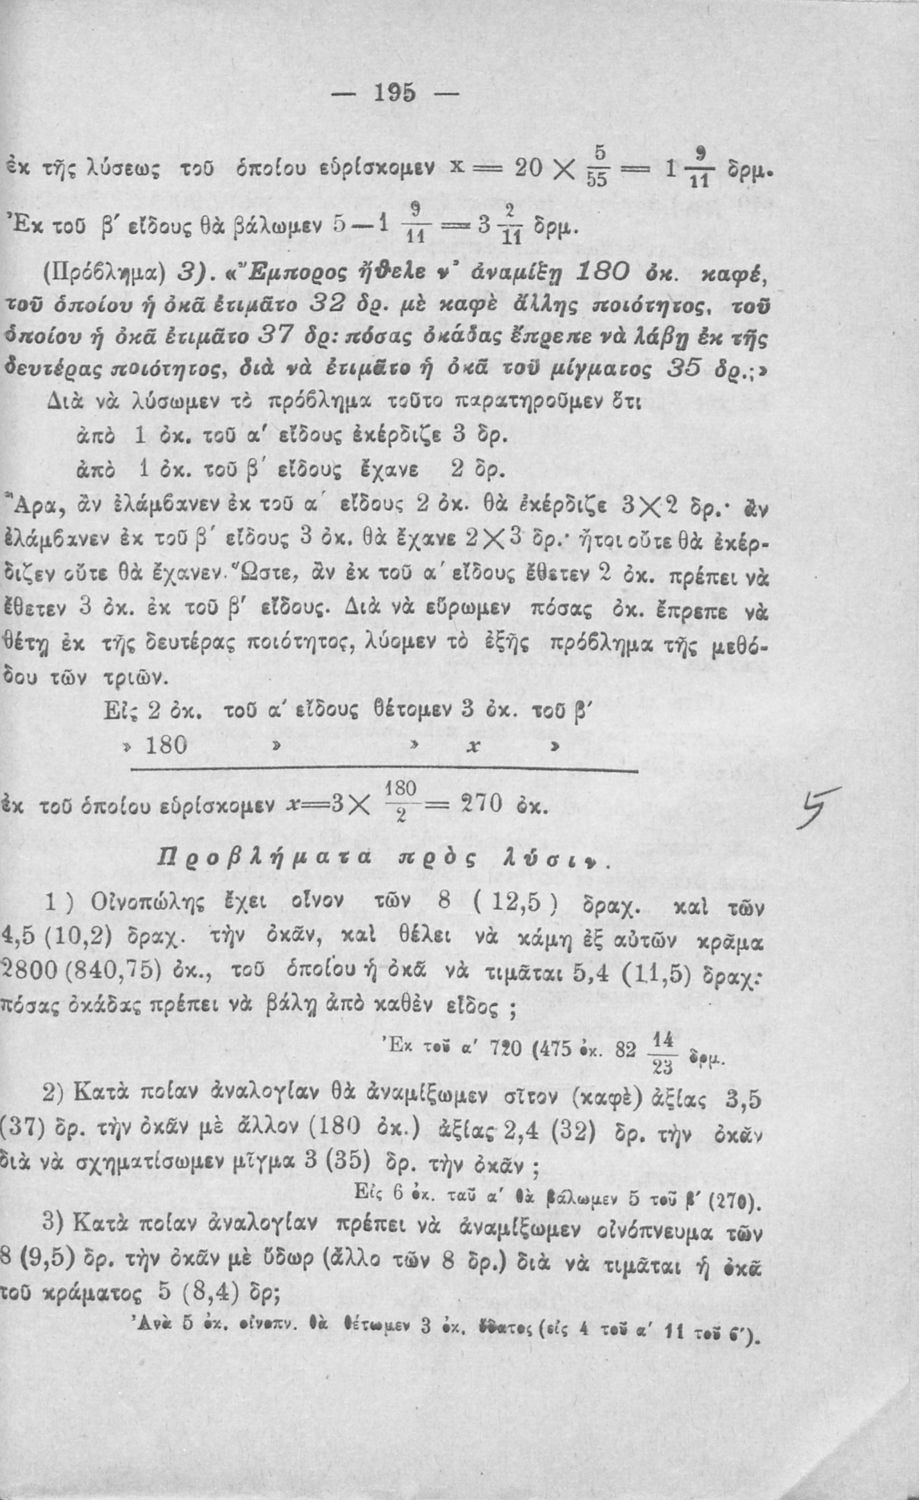 — 195 —
ἐκ τῆς λύσεως τοῦ ὁποίου εὑρίσκομεν x = 20 × 5/55 = 1 9/11 δρμ.
Ἐκ τοῦ β′ εἴδους θὰ βάλωμεν 5 — 1 9/11 = 3 2/11 δρμ.
(Πρόβλημα) 3). «Ἔμπορος ἤθελε ν᾽ ἀναμίξῃ 180 ὀκ. καφέ,
τοῦ ὁποίου ἡ ὀκᾶ ἐτιμᾶτο 32 δρ. μὲ καφὲ ἄλλης ποιότητος, τοῦ
ὁποίου ἡ ὀκᾶ ἐτιμᾶτο 37 δρ: πόσας ὀκάδας ἔπρεπε νὰ λάβῃ ἐκ τῆς
δευτέρας ποιότητος, διὰ νὰ ἐτιμᾶτο ἡ ὀκᾶ τοῦ μίγματος 35 δρ.;»
Διὰ νὰ λύσωμεν τὸ πρόβλημα τοῦτο παρατηροῦμεν ὅτι
ἀπὸ 1 ὀκ. τοῦ α′ εἴδους ἐκέρδιζε 3 δρ.
ἀπὸ 1 ὀκ. τοῦ β′ εἴδους ἔχανε 2 δρ.
Ἄρα, ἂν ἐλάμβανεν ἐκ τοῦ α′ εἴδους 2 ὀκ. θὰ ἐκέρδιζε 3×2 δρ.· ἂν
ἐλάμβανεν ἐκ τοῦ β′ εἴδους 3 ὀκ. θὰ ἔχανε 2×3 δρ.· ἤτοι οὔτε θὰ ἐκέρ-
διζεν οὔτε θὰ ἔχανεν. Ὥστε, ἂν ἐκ τοῦ α′ εἴδους ἔθετεν 2 ὀκ. πρέπει νὰ
ἔθετεν 3 ὀκ. ἐκ τοῦ β′ εἴδους. Διὰ νὰ εὕρωμεν πόσας ὀκ. ἔπρεπε νὰ
θέτῃ ἐκ τῆς δευτέρας ποιότητος, λύομεν τὸ ἑξῆς πρόβλημα τῆς μεθό-
δου τῶν τριῶν.
Εἰς 2 ὀκ. τοῦ α′ εἴδους θέτομεν 3 ὀκ. τοῦ β′
» 180 » » x »
ἐκ τοῦ ὁποίου εὑρίσκομεν x=3× 180/2 = 270 ὀκ.
5
Προβλήματα πρὸς λύσιν.
1) Οἰνοπώλης ἔχει οἶνον τῶν 8 (12,5) δραχ. καὶ τῶν
4,5 (10,2) δραχ. τὴν ὀκᾶν, καὶ θέλει νὰ κάμῃ ἐξ αὐτῶν κρᾶμα
2800 (840,75) ὀκ., τοῦ ὁποίου ἡ ὀκᾶ νὰ τιμᾶται 5,4 (11,5) δραχ.·
πόσας ὀκάδας πρέπει νὰ βάλῃ ἀπὸ καθὲν εἶδος ;
Ἐκ τοῦ α′ 720 (475 ὀκ. 82 14/23 δρμ.
2) Κατὰ ποίαν ἀναλογίαν θὰ ἀναμίξωμεν σῖτον (καφὲ) ἀξίας 3,5
(37) δρ. τὴν ὀκᾶν μὲ ἄλλον (180 ὀκ.) ἀξίας 2,4 (32) δρ. τὴν ὀκᾶν
διὰ νὰ σχηματίσωμεν μῖγμα 3 (35) δρ. τὴν ὀκᾶν ;
Εἰς 6 ὀκ. τοῦ α′ θὰ βάλωμεν 5 τοῦ β′ (270).
3) Κατὰ ποίαν ἀναλογίαν πρέπει νὰ ἀναμίξωμεν οἰνόπνευμα τῶν
8 (9,5) δρ. τὴν ὀκᾶν μὲ ὕδωρ (ἄλλο τῶν 8 δρ.) διὰ νὰ τιμᾶται ἡ ὀκᾶ
τοῦ κράματος 5 (8,4) δρ;
Ἀνὰ 5 ὀκ. οἰνοπν. θὰ θέτωμεν 3 ὀκ. ὕδατος (εἰς 4 τοῦ α′ 11 τοῦ β′).